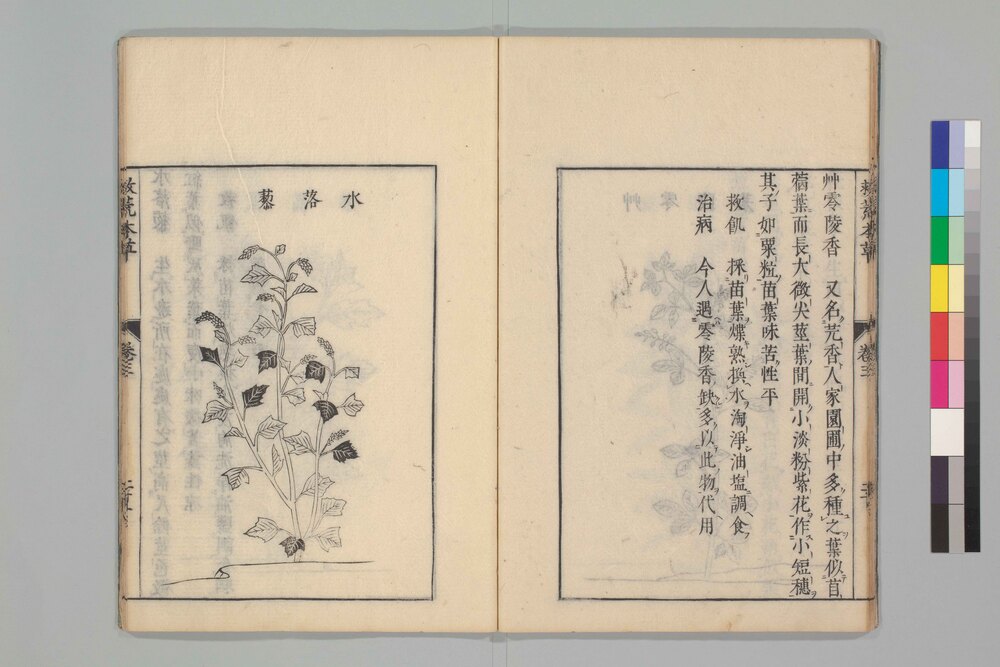 艸零陵香 又名芫香人家園圃中多種之葉似苜
蓿葉而長大微尖莖葉間開小淡粉紫花作小短穗
其子如粟粒苗葉味苦性平
救飢 採苗葉煠熟換水淘淨油塩調食
治病 今人遇零陵香缺多以此物代用
救荒本草
卷三
水落藜
救荒本草
卷三